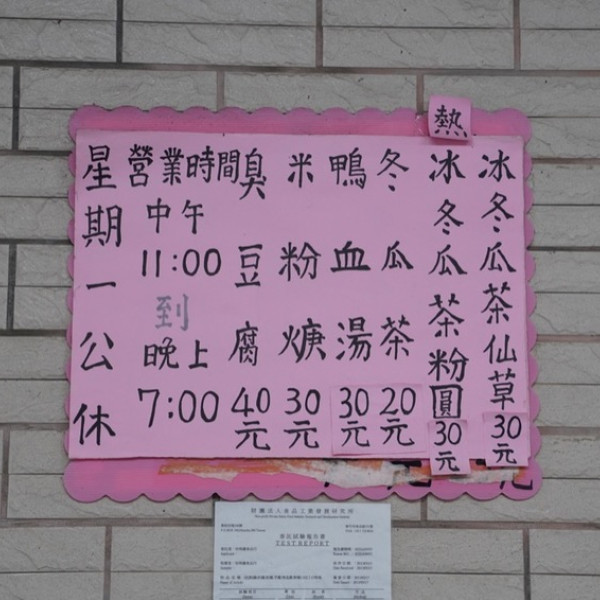 熱
冰冬瓜茶仙草30元
冰冬瓜茶粉圓30元
冬瓜茶20元
鴨血湯30元
米粉焿30元
臭豆腐40元
營業時間
中午
11:00
到
晚上
7:00
星期一公休
財團法人食品工業發展研究所
TEST REPORT